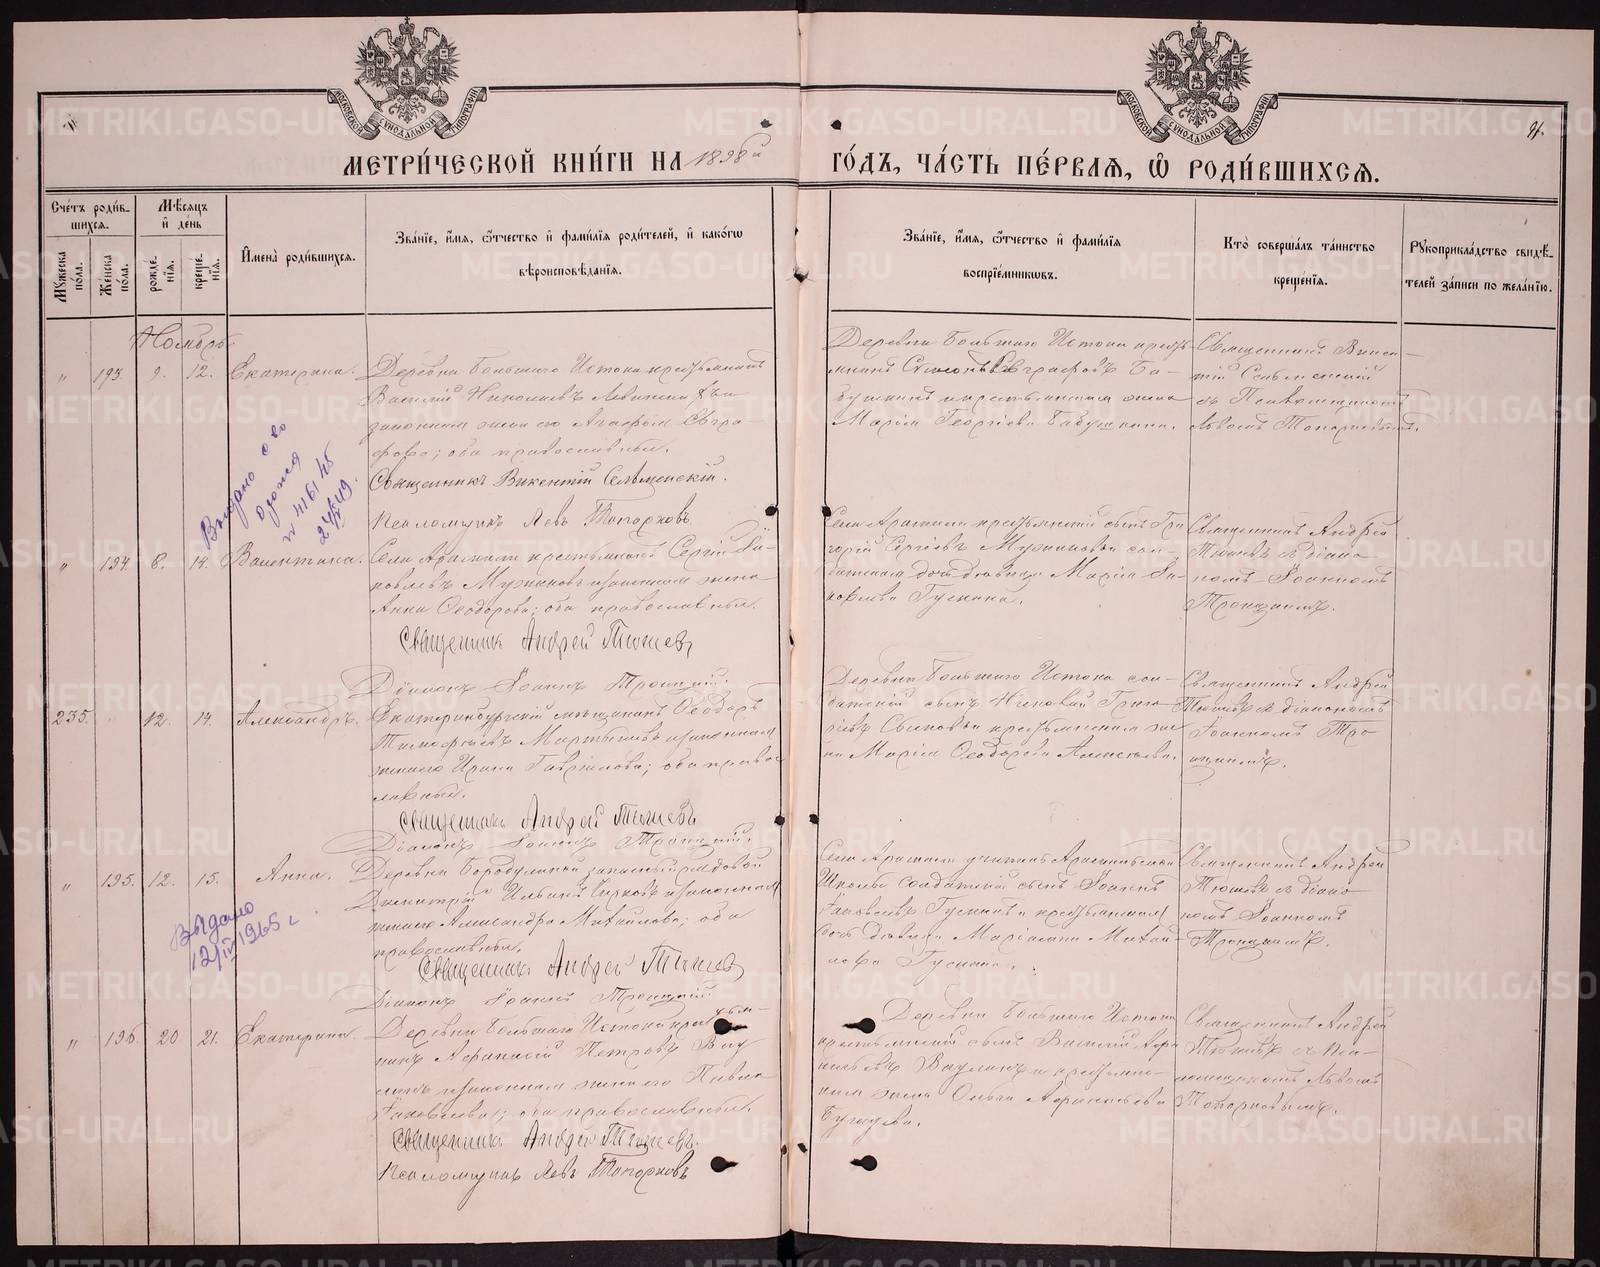 МОСКОВСКОЙ СѴНОДАЛЬНОЙ ТИПОГРАФІИ
МОСКОВСКОЙ СѴНОДАЛЬНОЙ ТИПОГРАФІИ
МЕТРИ́ЧЕСКОЙ КНИ́ГИ НА 1898й ГО́ДЪ, ЧА́СТЬ ПЕ́РВАѦ, Ѡ҆ РОДИ́ВШИХСѦ.
Сче́тъ роди́в-
шихсѧ.
Мꙋжеска по́ла.
Же́нска по́ла.
Мѣ́сѧцъ
и҆ де́нь
рожде́-
нїѧ.
креще́-
нїѧ.
И҆мена̀ роди́вшихсѧ.
Зва́нїе, и҆́мѧ, ѻ҆́тчество и҆ фамі́лїѧ роди́телей, и҆ како́гѡ
вѣроисповѣ́данїѧ.
Зва́нїе, и҆́мѧ, ѻ҆́тчество и҆ фамі́лїѧ
воспрїе́мникѡвъ.
Кто̀ соверша́лъ та́инство
креще́нїѧ.
Рꙋкоприкла́дство свидѣ́-
телей за́писи по жела́нїю.
Ноябрь
" 193. 9. 12. Екатерина.
Деревни Большаго Истока крестьянинъ
Василій Николаевъ и
законная жена его Агафья Евгра-
фова; оба православные.
Священникъ Викентій Сельменскій.
Псаломщикъ Левъ Топорковъ.
Деревни Большаго Истока кресть-
янинъ Евграфовъ Ба-
бушкинъ и крестьянская жена
Марія Георгіева Бабушкина.
Священникъ Викен-
тій Сельменскій
съ Псаломщикомъ
Львомъ Топорковымъ.
Выдано с-во
о рожд
№ 4161
" 194. 8. 14. Валентина.
Села Арамили крестьянинъ Сергій Іа-
ковлевъ и законная жена
Анна Ѳеодорова; оба православные.
Священникъ Андрей Тюшевъ
Діаконъ Іоаннъ Троицкій.
Села Арамили крестьянскій сынъ Гри-
горій Сергіевъ и сол-
датская дочь дѣвица Марія Іа-
ковлева Гускина.
Священникъ Андрей
Тюшевъ съ діако-
номъ Іоанномъ
Троицкимъ.
235. " 12. 14. Александръ.
Екатеринбургскій мѣщанинъ Ѳеодоръ
Тимофеевъ Мартыновъ и законная
жена его Ирина Гавріилова; оба право-
славные.
Священникъ Андрей Тюшевъ
Діаконъ Іоаннъ Троицкій.
Деревни Большаго Истока сол-
датскій сынъ Николай Григо-
рьевъ и крестьянская же-
на Марія Ѳеодорова Алексѣева.
Священникъ Андрей
Тюшевъ съ діакономъ
Іоанномъ Тро-
ицкимъ.
" 195. 12. 15. Анна.
Деревни Бородулиной запасный рядовой
Димитрій Ильинъ и законная
жена Александра Михаилова; оба
православные.
Священникъ Андрей Тюшевъ
Діаконъ Іоаннъ Троицкій
Села Арамили учитель Арамильской
Школы солдатскій сынъ Іоаннъ
Іаковлевъ Гускинъ и крестьянская
дочь дѣвица Михай-
лова Гускина.
Священникъ Андрей
Тюшевъ съ діако-
номъ Іоанномъ
Троицкимъ.
Выдано
12/IV 1965 г
" 196. 20 21. Екатерина.
Деревни Большаго Истока крестьян-
нинъ Афанасій Петровъ Вау-
линъ и законная жена его Павла
Іаковлева; оба православные.
Священникъ Андрей Тюшевъ.
Псаломщикъ Левъ Топорковъ
Деревни Большаго Истока
крестьянскій сынъ Василій Афа-
насьевъ Ваулинъ и крестьянс-
кая жена Ольга Афанасьева
Священникъ Андрей
Тюшевъ съ Пса-
ломщикомъ Львомъ
Топорковымъ.
METRIKI.GASO-URAL.RU